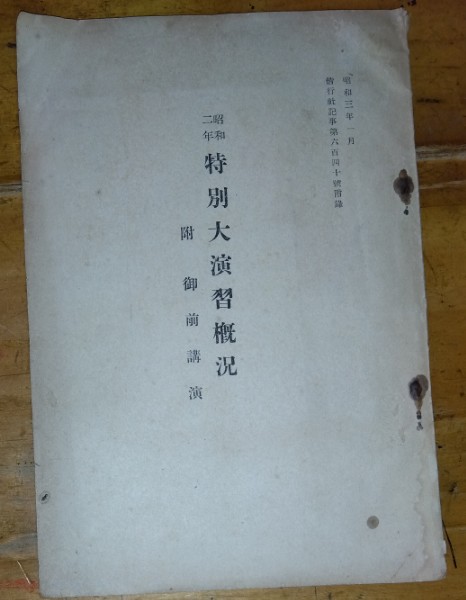 昭和三年一月
偕行社記事第六百四十號附錄
昭和二年特別大演習概況
附御前講演